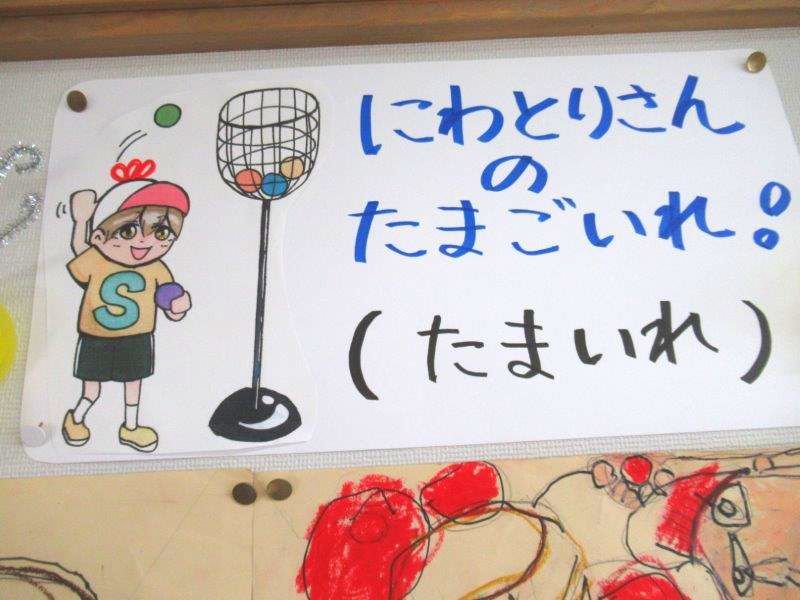 にわとりさん
の
たまごいれ!
(たまいれ)
S